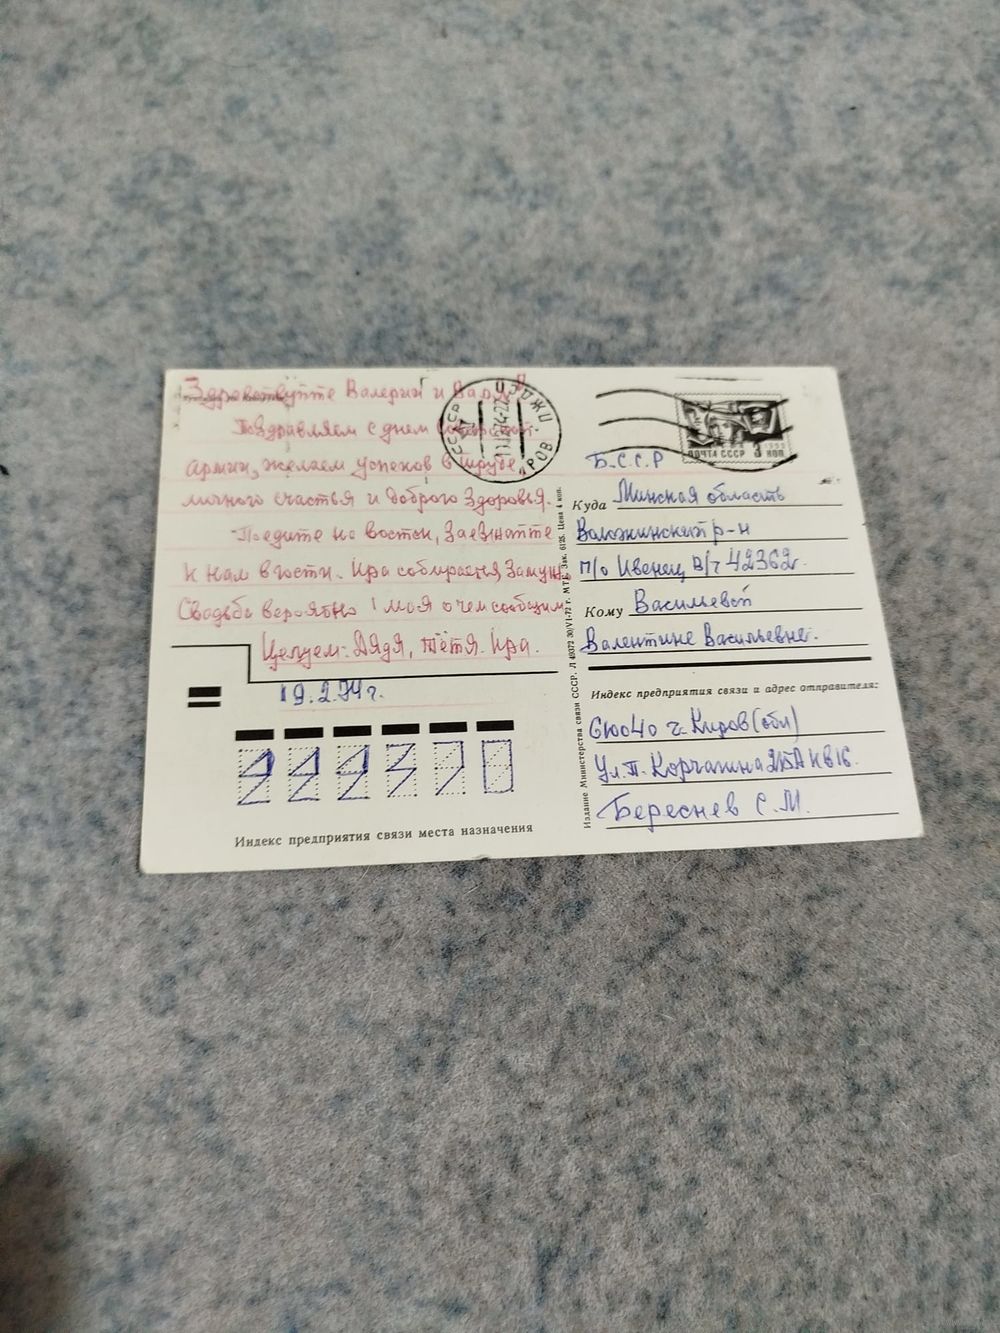 Здравствуйте Валерий и Варя!
Поздравляем с днем Советской
армии, желаем успехов в труде,
личного счастья и доброго здоровья.
Поедите на восток, заезжайте
к нам в гости. Ира собирается замуж.
Свадьба вероятно 1 мая о чем сообщим
Целуем: Дядя, тётя. Ира.
19.2.74 г.
222310
Индекс предприятия связи места назначения
СССР
КИРОВ
ПОЧТА СССР
КОП
Б.С.С.Р
Куда Минская область
Воложинский р-н
п/о Ивенец В/ч 42362г.
Кому Васильевой
Валентине Васильевне.
Индекс предприятия связи и адрес отправителя:
610040 г. Киров (обл)
Ул. П. Корчагина 215А кв 16.
Береснев С. М.
Издание Министерства связи СССР. Л 49372 30/VI-72 г. МТГ. Зак. 6125. Цена 4 коп.